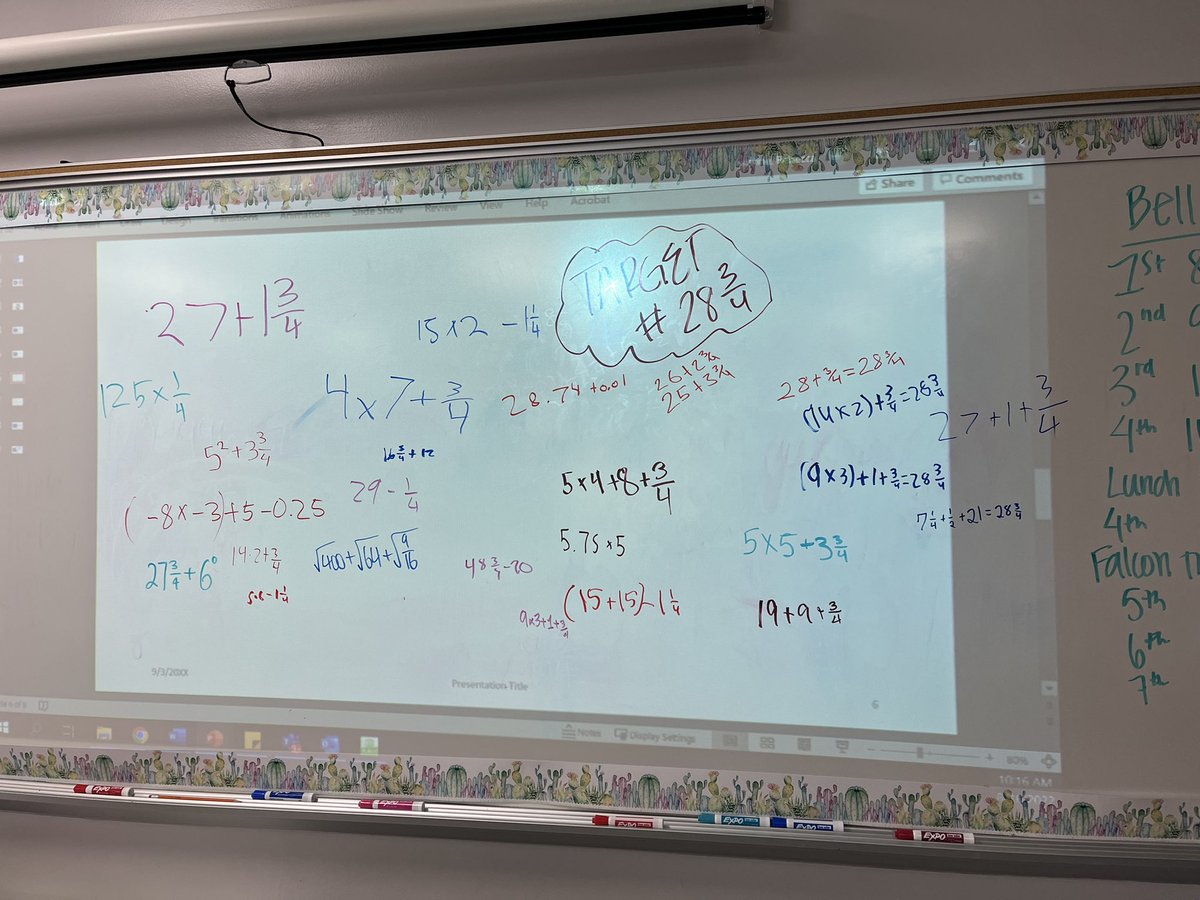 Share
Comments
Animations
Slide Show
Review
View
Help
Acrobat
TARGET
# 28 3/4
27+1 3/4
15×2 - 1 1/4
125 × 1/4
4×7+3/4
28.74+0.01
26+2 3/4
25+3 3/4
28+3/4=28 3/4
(14×2)+3/4=28 3/4
27+1+3/4
5²+3 3/4
16 3/4+12
29 - 1/4
5×4+8+3/4
(9×3)+1+3/4=28 3/4
(-8×-3)+5-0.25
7 1/4+1/2+21=28 3/4
27 3/4+6⁰
14·2+3/4
√400+√64+√9/16
48 3/4-20
5.75×5
5×5+3 3/4
9×3+1+3/4
(15+15)-1 1/4
19+9+3/4
9/3/20XX
Presentation Title
6
Notes
Display Settings
80%
10:16 AM
Bell
1st 8
2nd
3rd
4th
Lunch
4th
Falcon
5th
6th
7th
EXPO
EXPO
EXPO